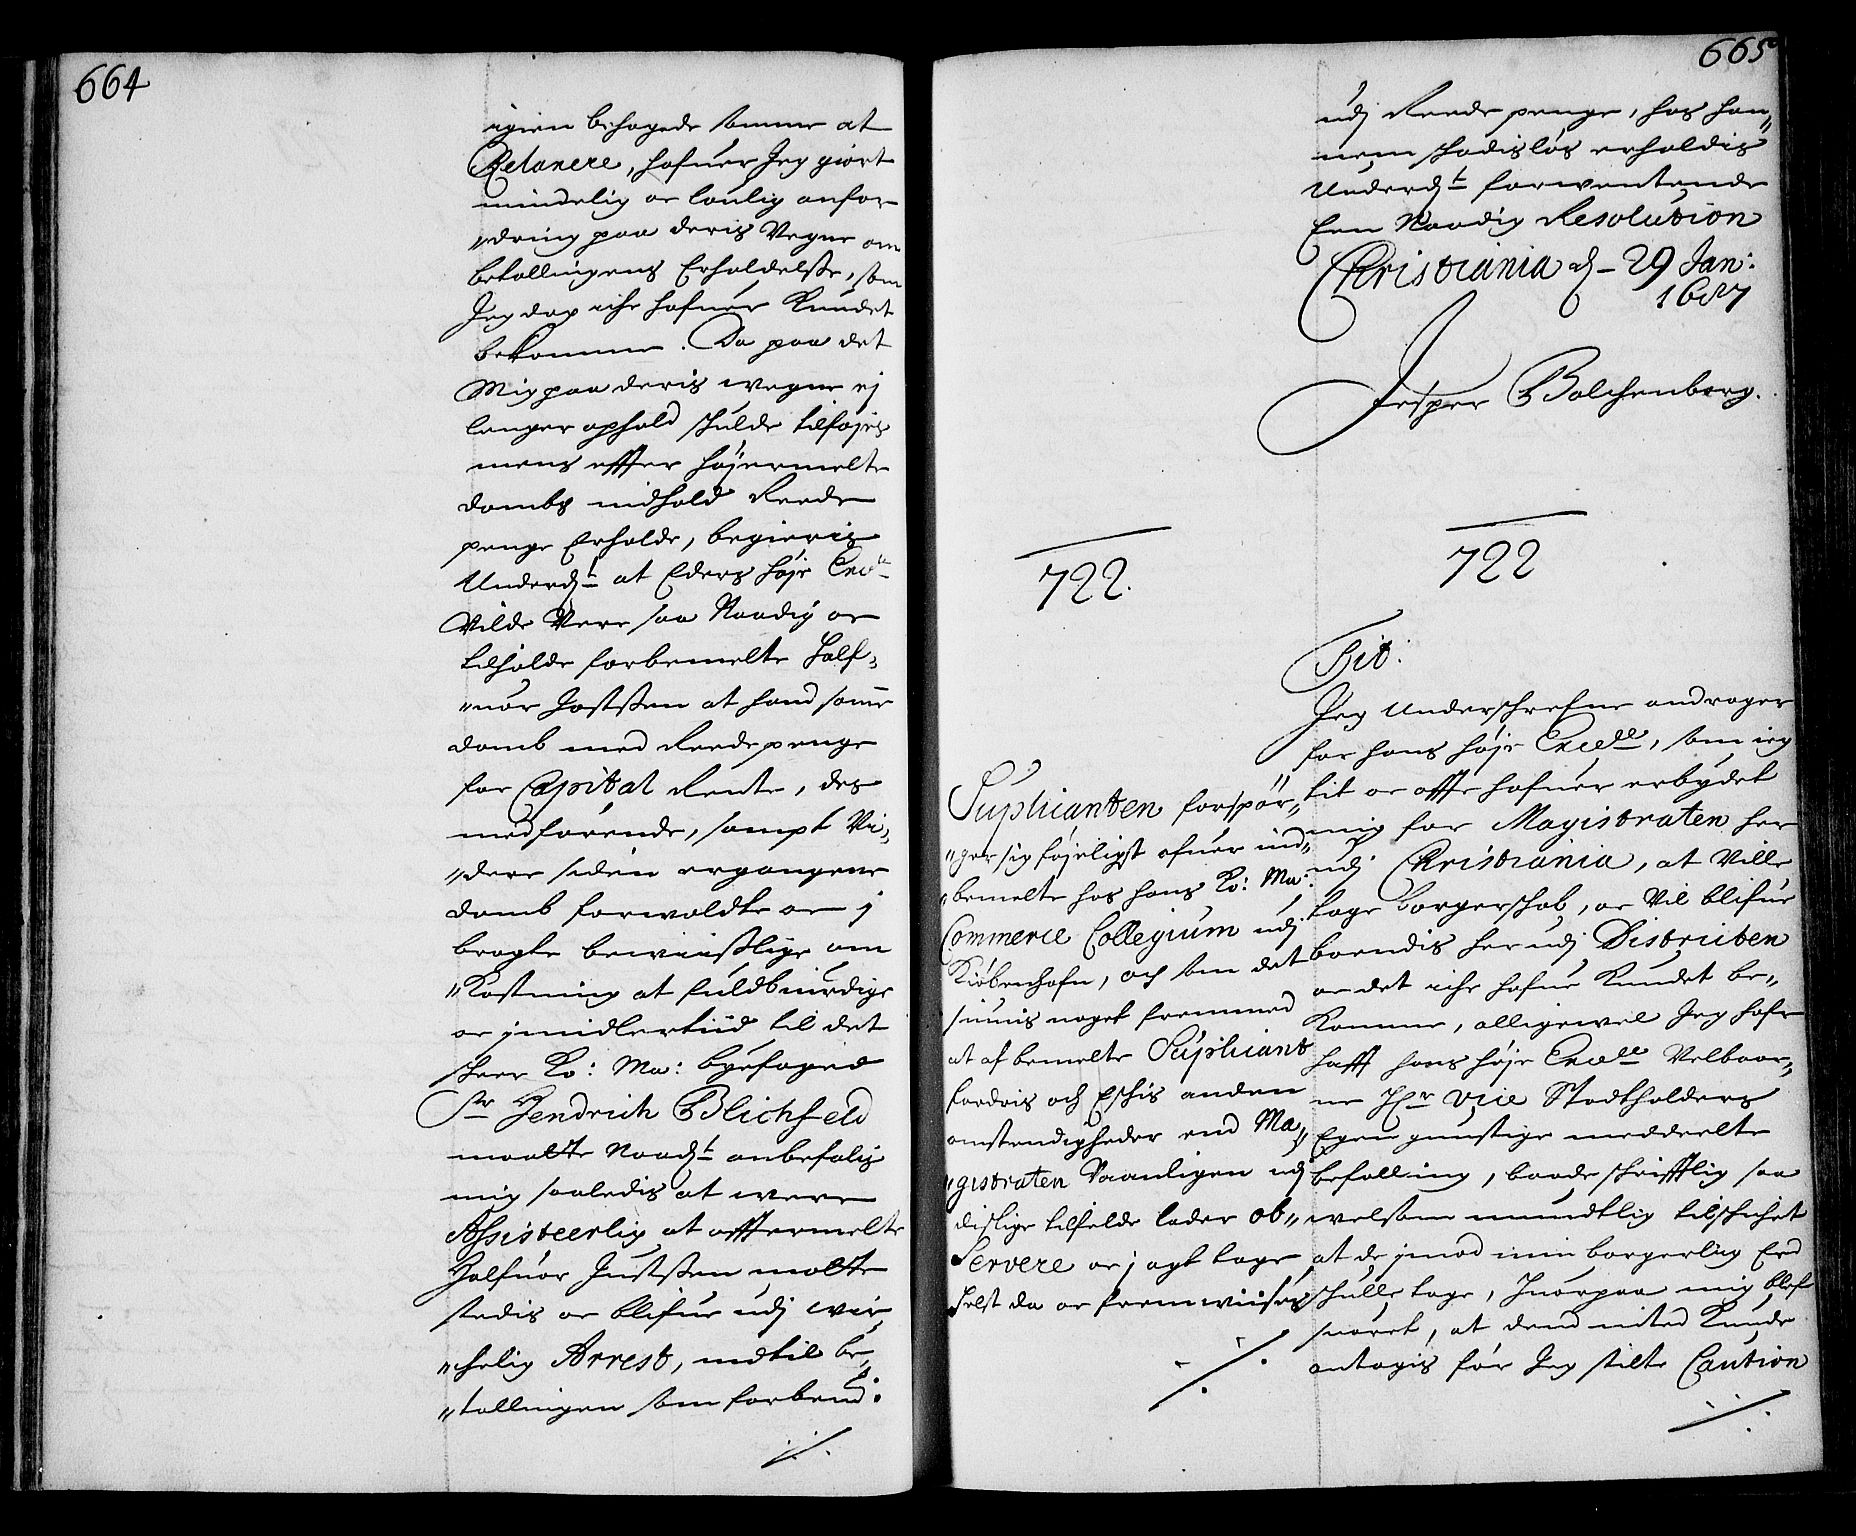 664
igien behagede samme at
Retanere, hafuer Jeg giort
mindelig oc loulig anfor
"dring paa deris Vegne om
betallingens Erholdelsse, som
Jeg dog icke hafuer Kundet
bekomme. Da paa det
Mig paa deris wegne ej
langer ophold schulde tilføjes
mens effter høyermelte
dombs indhold Reede
penge Erholde, begieris
Underdt at Eders høje Excle
Vilde Vere saa Naadig oc
tilholde forbemelte Half-
"uor Jostssen at hand same
domb med Reede penge
for Capital Rente, des
medførende, sampt Vi-
"dere siden ergangene
domb forvoldte oc j
bragte bewiisslige om
"Kostning at fuldbiurdige
oc jmidlertiid til det
scheer Ko: Ma: byefoged
Sr Hendrich Blichfeld
maatte Naadt anbefalis
mig saaledis at were
Assisteerlig at offtermelte
Halfuor Justssen motte
stedis oc blifue udj wir
"chelig Arrest, indtil be-
"tallingen som forbemt:
./.
665
udj Reede penge, hos han-
nem schadisløs erholdis
Underdt forwentende
Een Naadig Resolution
Christiania d- 29 Jan:
1687
Jesper Balchenborg.
722.
Suplicanten forspør-
"ger sig føjeligst ofuer ind-
"bemelte hos hans Ko: Ma:
Commerce Collegium udj
Kiøbenhafn, och som det
siunis noget fremmed
at af bemelte Supliant
fordris och Eschis anden
omstendigheder end Ma-
"gistraten Vaanligen udj
dislige tilfelde lader ob-
Servere oc j agt tage
helst da oc fremwiises
./.
722
Tit:
Jeg Underschrefne andrager
for hans høje Excelle, som ieg
tit oc offte hafuer erbydet
mig for Magistraten her
udj Christiania, at Ville
tage borgerschab, oc Vil blifue
boendis her udj Districten
oc det icke hafue Kundet be-
Komme, alligewel Jeg hafr
hafft hans høje Excelle Velbaar-
ne Hr Vice Stadtholders
Egen gunstige meddeelte
befalling, baade schrifftlig saa
welsom mundtlig tilschichet
at de jmod min borgerlig Eed
schulle tage, huorpaa mig blef
suaret, at dend inted Kunde
antagis før Jeg stilte Caution
./.